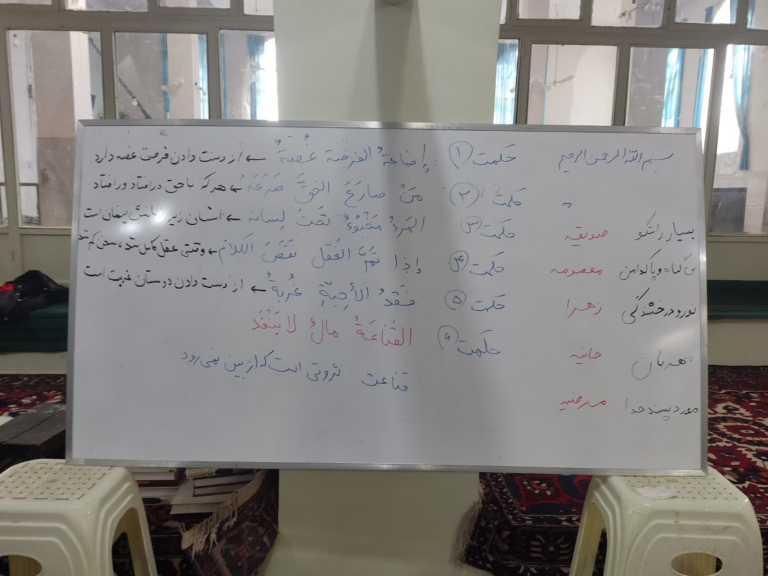 بسم الله الرحمن الرحیم
حکمت ۱ إضاعةُ الفرصَة غُصّةٌ ← از دست دادن فرصت غصه دارد
حکمت ۲ مَنْ صارَعَ الحقَّ صَرَعَهُ ← هر که با حق درافتاد ورافتاد
حکمت ۳ المَرءُ مَخْبُوءٌ تَحْتَ لِسانِه ← انسان زیر زبانش پنهان است
حکمت ۴ إذا تَمَّ العَقل نَقَصَ الکَلامُ ← وقتی عقل کامل شد، سخن کم شد
حکمت ۵ فَقدُ الأحِبّةِ غُربةٌ ← از دست دادن دوستان غربت است
حکمت ۶ القَناعَةُ مالٌ لا یَنْفَد
قناعت ثروتی است که از بین نمی رود
صدیقه بسیار راستگو
معصومه بی گناه و پاکدامن
زهرا نور و درخشندگی
حانیه مهربان
مرضیه مورد پسند خدا